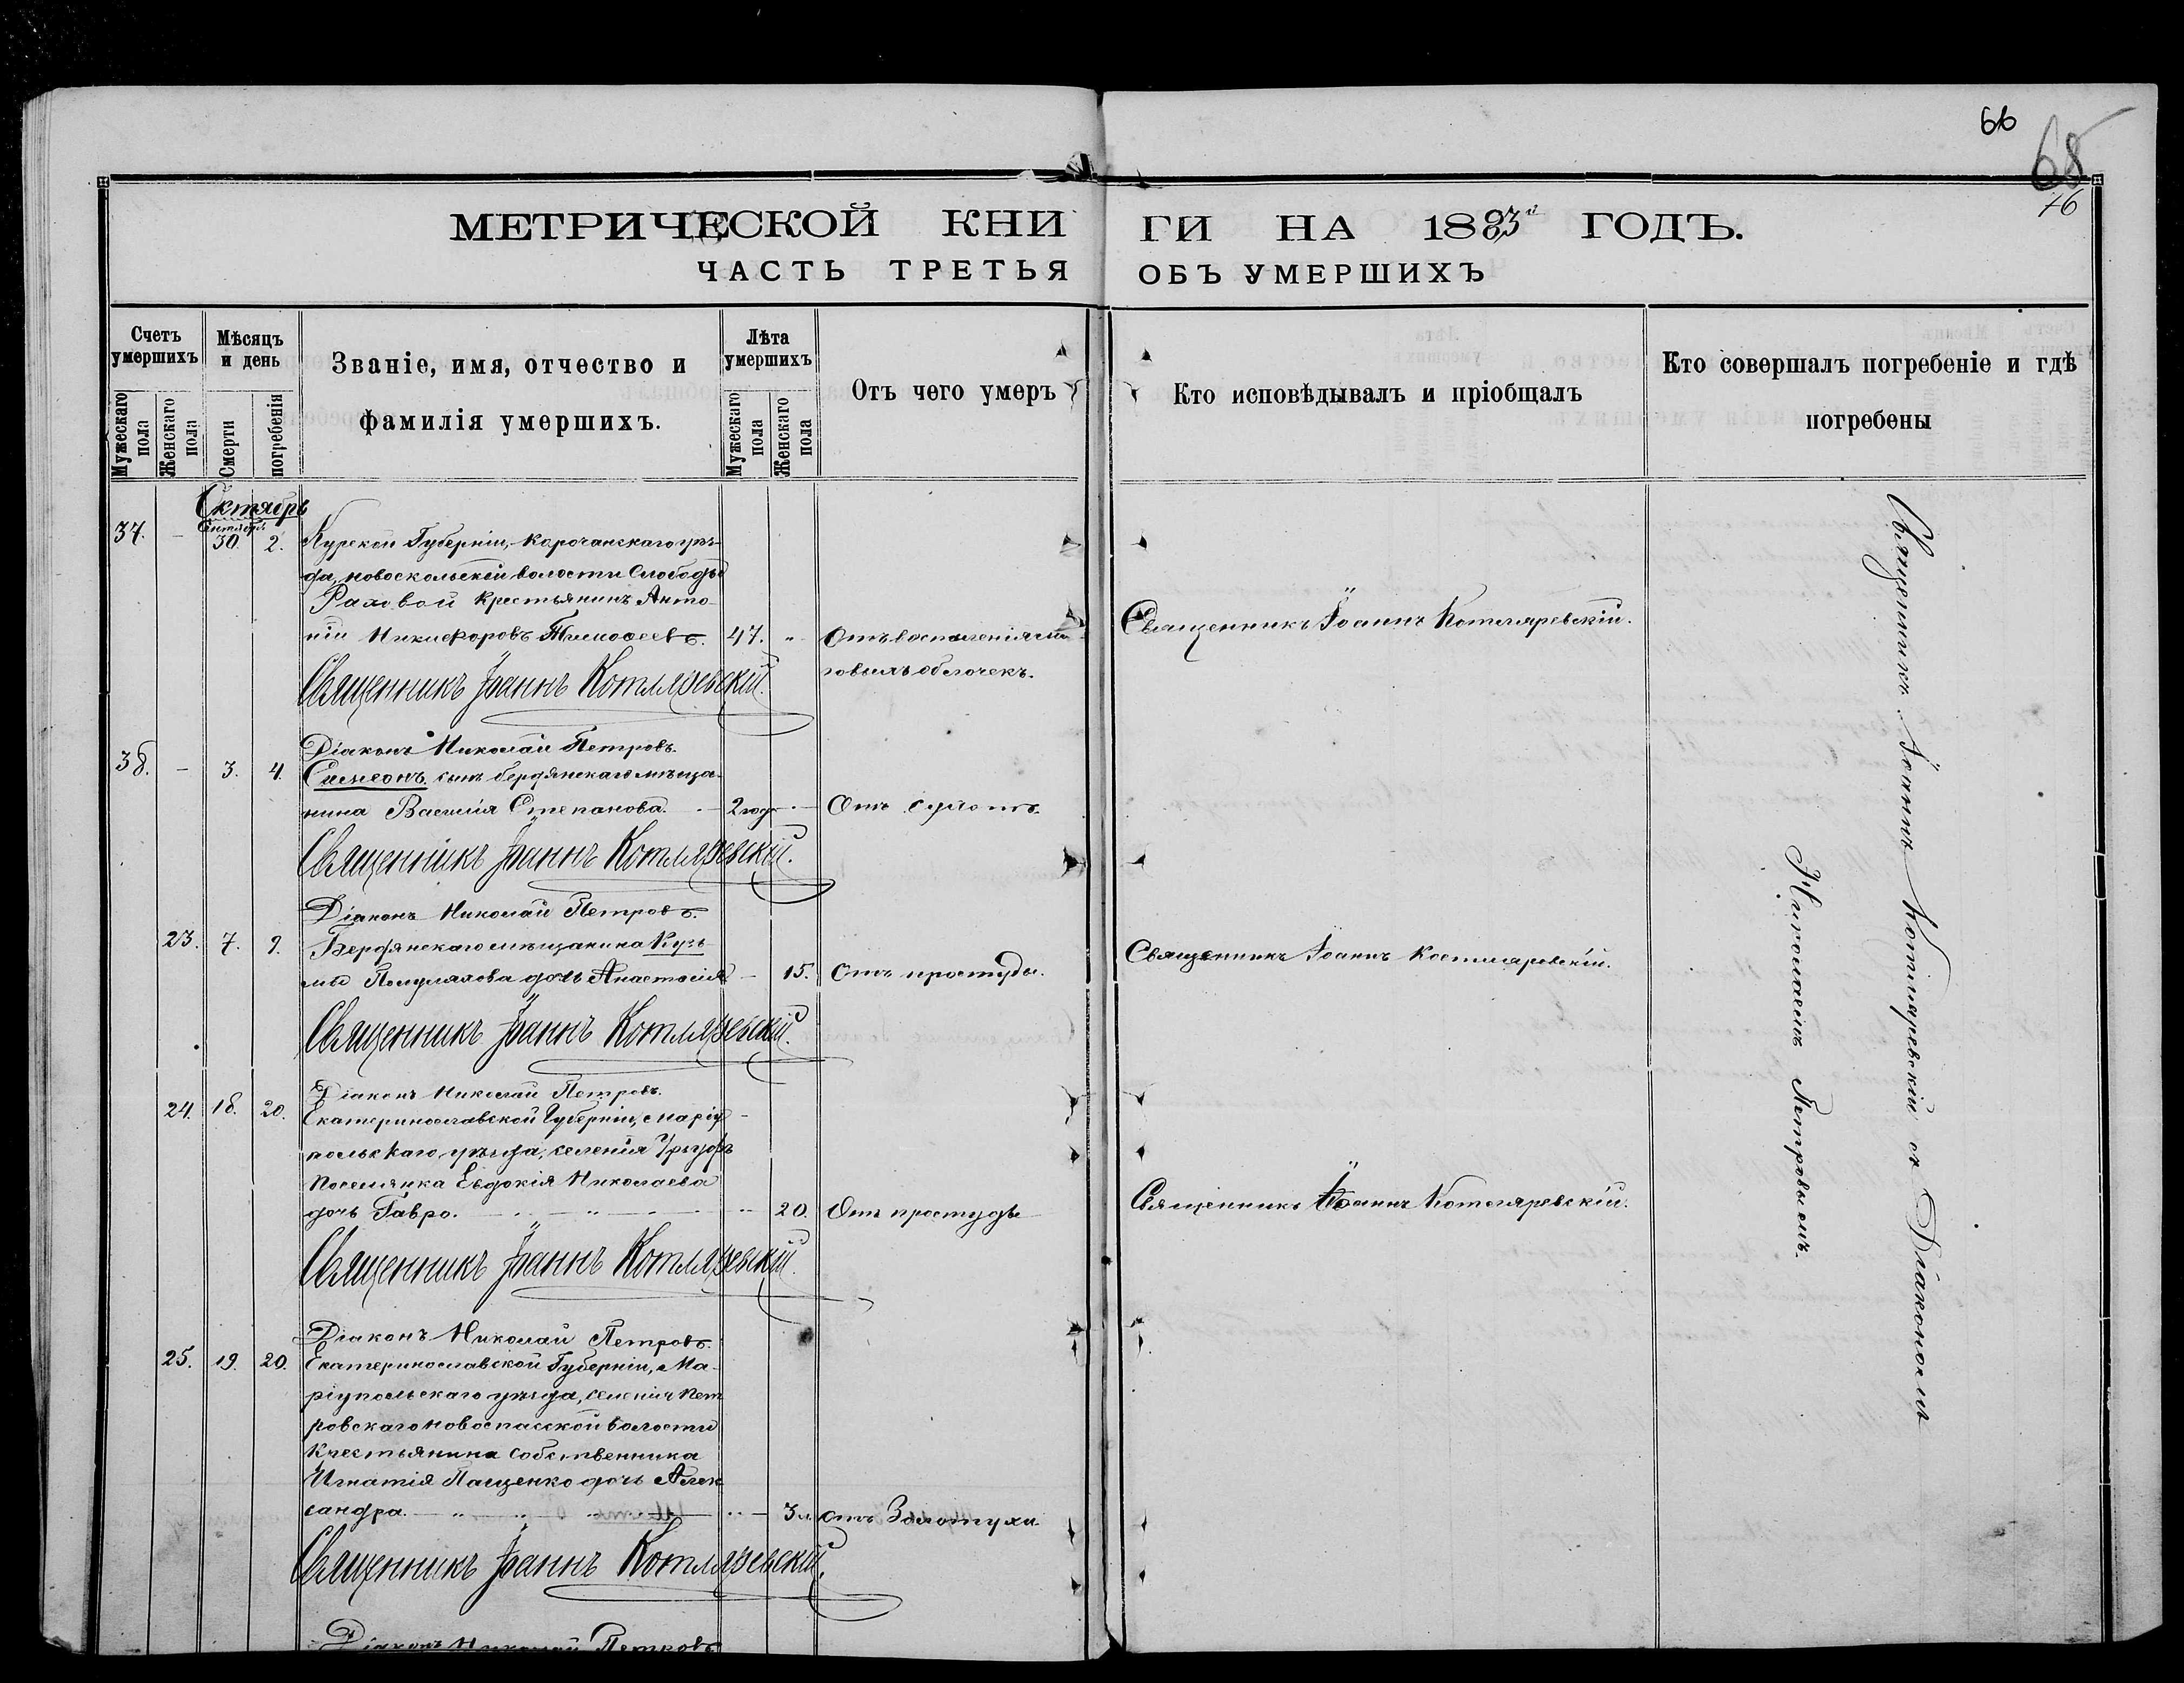 66
68
76
МЕТРИЧЕСКОЙ КНИГИ НА 1883й ГОДЪ.
ЧАСТЬ ТРЕТЬЯ ОБЪ УМЕРШИХЪ
Счетъ умершихъ
Мужескаго пола
Женскаго пола
Мѣсяцъ и день
Смерти
погребенія
Званіе, имя, отчество и
фамилія умершихъ.
Лѣта умершихъ
Мужескаго пола
Женскаго пола
Отъ чего умеръ
Кто исповѣдывалъ и пріобщалъ
Кто совершалъ погребеніе и гдѣ
погребены
Октябрь
Сентябрь
37. - 30. 2. Курской Губерніи, Корочанскаго уѣз-
да, новоскольской волости Слободы
Раховой Крестьянинъ Анто-
ній Никифоровъ Тимоѳеевъ. 47. " Отъ воспаленія моз-
говыхъ оболочекъ.
Священникъ Іоаннъ Котляревскій.
Священникъ Іоаннъ Котляревскій.
Діаконъ Николай Петровъ.
38. - 3. 4. Симеонъ сынъ бердянскаго мѣща-
нина Василія Степанова. - 2 год. - Отъ
Священникъ Іоаннъ Котляревскій.
Діаконъ Николай Петровъ.
23. 7. 9. Бердянскаго мѣщанина Кузь-
мы дочь Анастасія - 15. Отъ простуды.
Священникъ Іоаннъ Котляревскій.
Священникъ Іоаннъ Котляревскій.
Діаконъ Николай Петровъ.
24. 18. 20. Екатеринославской Губерніи, Маріу-
польскаго уѣзда, селенія Урзуфъ
Поселянка Евдокія Николаева
дочь Гавро. 20. Отъ простуды
Священникъ Іоаннъ Котляревскій.
Священникъ Іоаннъ Котляревскій.
Діаконъ Николай Петровъ.
25. 19. 20. Екатеринославской Губерніи, Ма-
ріупольскаго уѣзда, селенія Пет-
ровскаго новоспасской волости
Крестьянина собственника
Игнатія Пащенко дочь Алек-
сандра. 3 л. отъ Золотухи
Священникъ Іоаннъ Котляревскій.
Діаконъ Николай Петровъ
Священникъ Іоаннъ Котляревскій съ Діакономъ
Николаемъ Петровымъ.